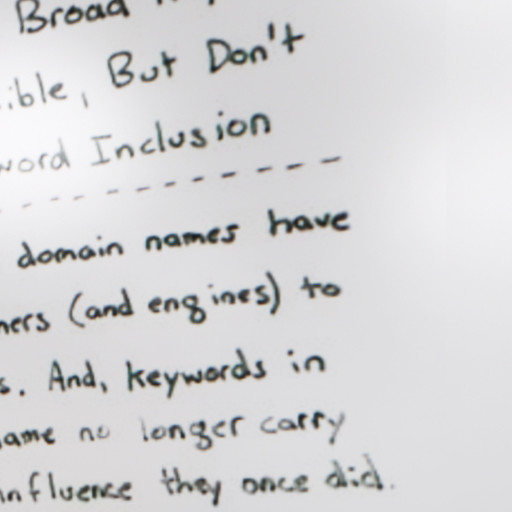 Broad
ible, But Don't
word Inclusion
domain names have
ners (and engines) to
s. And, keywords in
ame no longer carry
influence they once did.